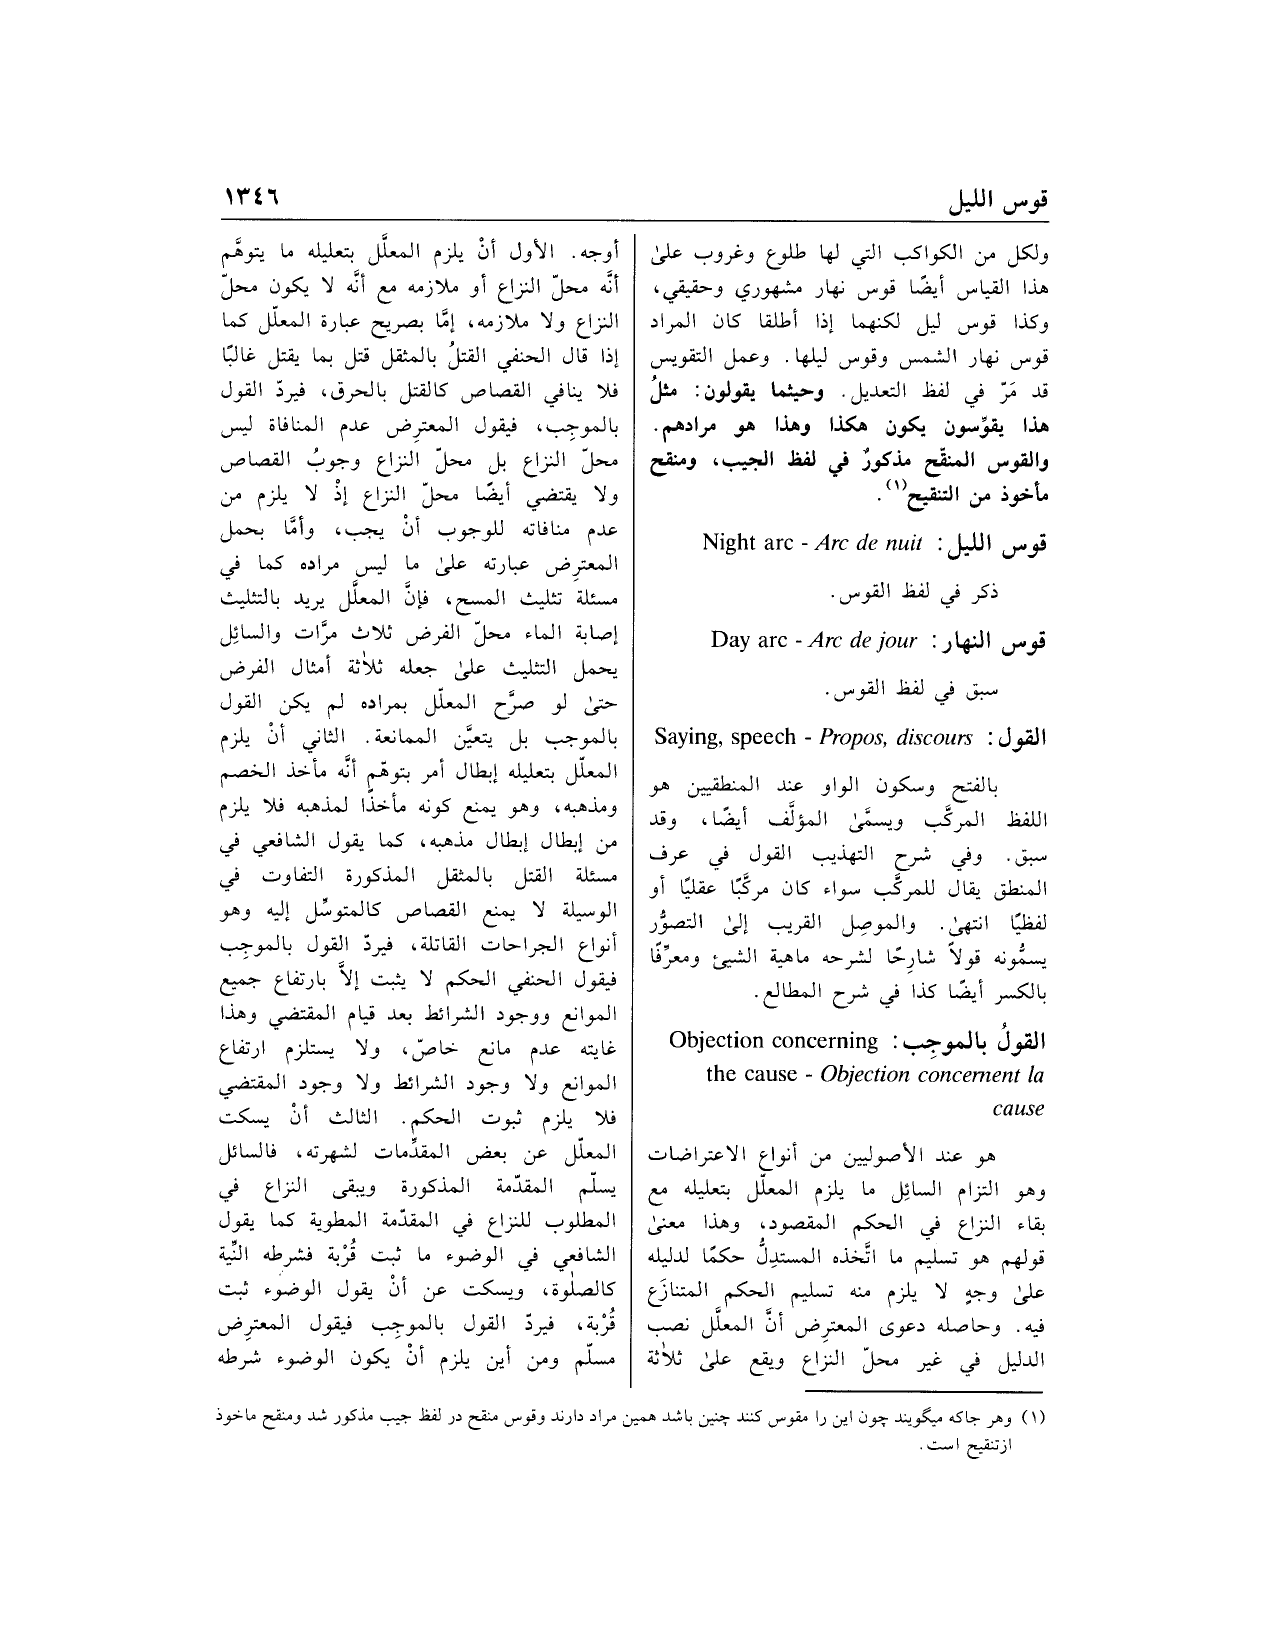 قوس الليل
١٣٤٦
ولكل من الكواكب التي لها طلوع وغروب علىٰ
هذا القياس أيضًا قوس نهار مشهوري وحقيقي،
وكذا قوس ليل لكنهما إذا أطلقا كان المراد
قوس نهار الشمس وقوس ليلها. وعمل التقويس
قد مَرّ في لفظ التعديل. وحيثما يقولون: مثلُ
هذا يقوِّسون يكون هكذا وهذا هو مرادهم.
والقوس المنقّح مذكورٌ في لفظ الجيب، ومنقح
مأخوذ من التنقيح(١).
قوس الليل: Night arc - Arc de nuit
ذكر في لفظ القوس.
قوس النهار: Day arc - Arc de jour
سبق في لفظ القوس.
القول: Saying, speech - Propos, discours
بالفتح وسكون الواو عند المنطقيين هو
اللفظ المركَّب ويسمَّىٰ المؤلَّف أيضًا، وقد
سبق. وفي شرح التهذيب القول في عرف
المنطق يقال للمركَّب سواء كان مركَّبًا عقليًا أو
لفظيًا انتهىٰ. والموصِل القريب إلىٰ التصوُّر
يسمُّونه قولاً شارحًا لشرحه ماهية الشيئ ومعرِّفًا
بالكسر أيضًا كذا في شرح المطالع.
القولُ بالموجِب: Objection concerning
the cause - Objection concernent la
cause
هو عند الأصوليين من أنواع الاعتراضات
وهو التزام السائل ما يلزم المعلّل بتعليله مع
بقاء النزاع في الحكم المقصود، وهذا معنىٰ
قولهم هو تسليم ما اتَّخذه المستدِلُّ حكمًا لدليله
علىٰ وجهٍ لا يلزم منه تسليم الحكم المتنازَع
فيه. وحاصله دعوى المعترِض أنَّ المعلَّل نصب
الدليل في غير محلّ النزاع ويقع علىٰ ثلاثة
أوجه. الأول أنْ يلزم المعلَّل بتعليله ما يتوهَّم
أنَّه محلّ النزاع أو ملازمه مع أنَّه لا يكون محلّ
النزاع ولا ملازمه، إمَّا بصريح عبارة المعلّل كما
إذا قال الحنفي القتلُ بالمثقل قتل بما يقتل غالبًا
فلا ينافي القصاص كالقتل بالحرق، فيردّ القول
بالموجِب، فيقول المعترِض عدم المنافاة ليس
محلّ النزاع بل محلّ النزاع وجوبُ القصاص
ولا يقتضي أيضًا محلّ النزاع إذْ لا يلزم من
عدم منافاته للوجوب أنْ يجب، وأمَّا بحمل
المعترِض عبارته علىٰ ما ليس مراده كما في
مسئلة تثليث المسح، فإنَّ المعلَّل يريد بالتثليث
إصابة الماء محلّ الفرض ثلاث مرَّات والسائِل
يحمل التثليث علىٰ جعله ثلاثة أمثال الفرض
حتىٰ لو صرَّح المعلّل بمراده لم يكن القول
بالموجب بل يتعيَّن الممانعة. الثاني أنْ يلزم
المعلّل بتعليله إبطال أمر بتوهّم أنَّه مأخذ الخصم
ومذهبه، وهو يمنع كونه مأخذًا لمذهبه فلا يلزم
من إبطال إبطال مذهبه، كما يقول الشافعي في
مسئلة القتل بالمثقل المذكورة التفاوت في
الوسيلة لا يمنع القصاص كالمتوسِّل إليه وهو
أنواع الجراحات القاتلة، فيردّ القول بالموجِب
فيقول الحنفي الحكم لا يثبت إلاَّ بارتفاع جميع
الموانع ووجود الشرائط بعد قيام المقتضي وهذا
غايته عدم مانع خاصّ، ولا يستلزم ارتفاع
الموانع ولا وجود الشرائط ولا وجود المقتضي
فلا يلزم ثبوت الحكم. الثالث أنْ يسكت
المعلّل عن بعض المقدِّمات لشهرته، فالسائل
يسلّم المقدّمة المذكورة ويبقى النزاع في
المطلوب للنزاع في المقدّمة المطوية كما يقول
الشافعي في الوضوء ما ثبت قُرْبة فشرطه النِّية
كالصلٰوة، ويسكت عن أنْ يقول الوضوء ثبت
قُرْبة، فيردّ القول بالموجِب فيقول المعترِض
مسلّم ومن أين يلزم أنْ يكون الوضوء شرطه
(١) وهر جاكه ميگويند چون اين را مقوس كنند چنين باشد همين مراد دارند وقوس منقح در لفظ جيب مذكور شد ومنقح ماخوذ
ازتنقيح است.